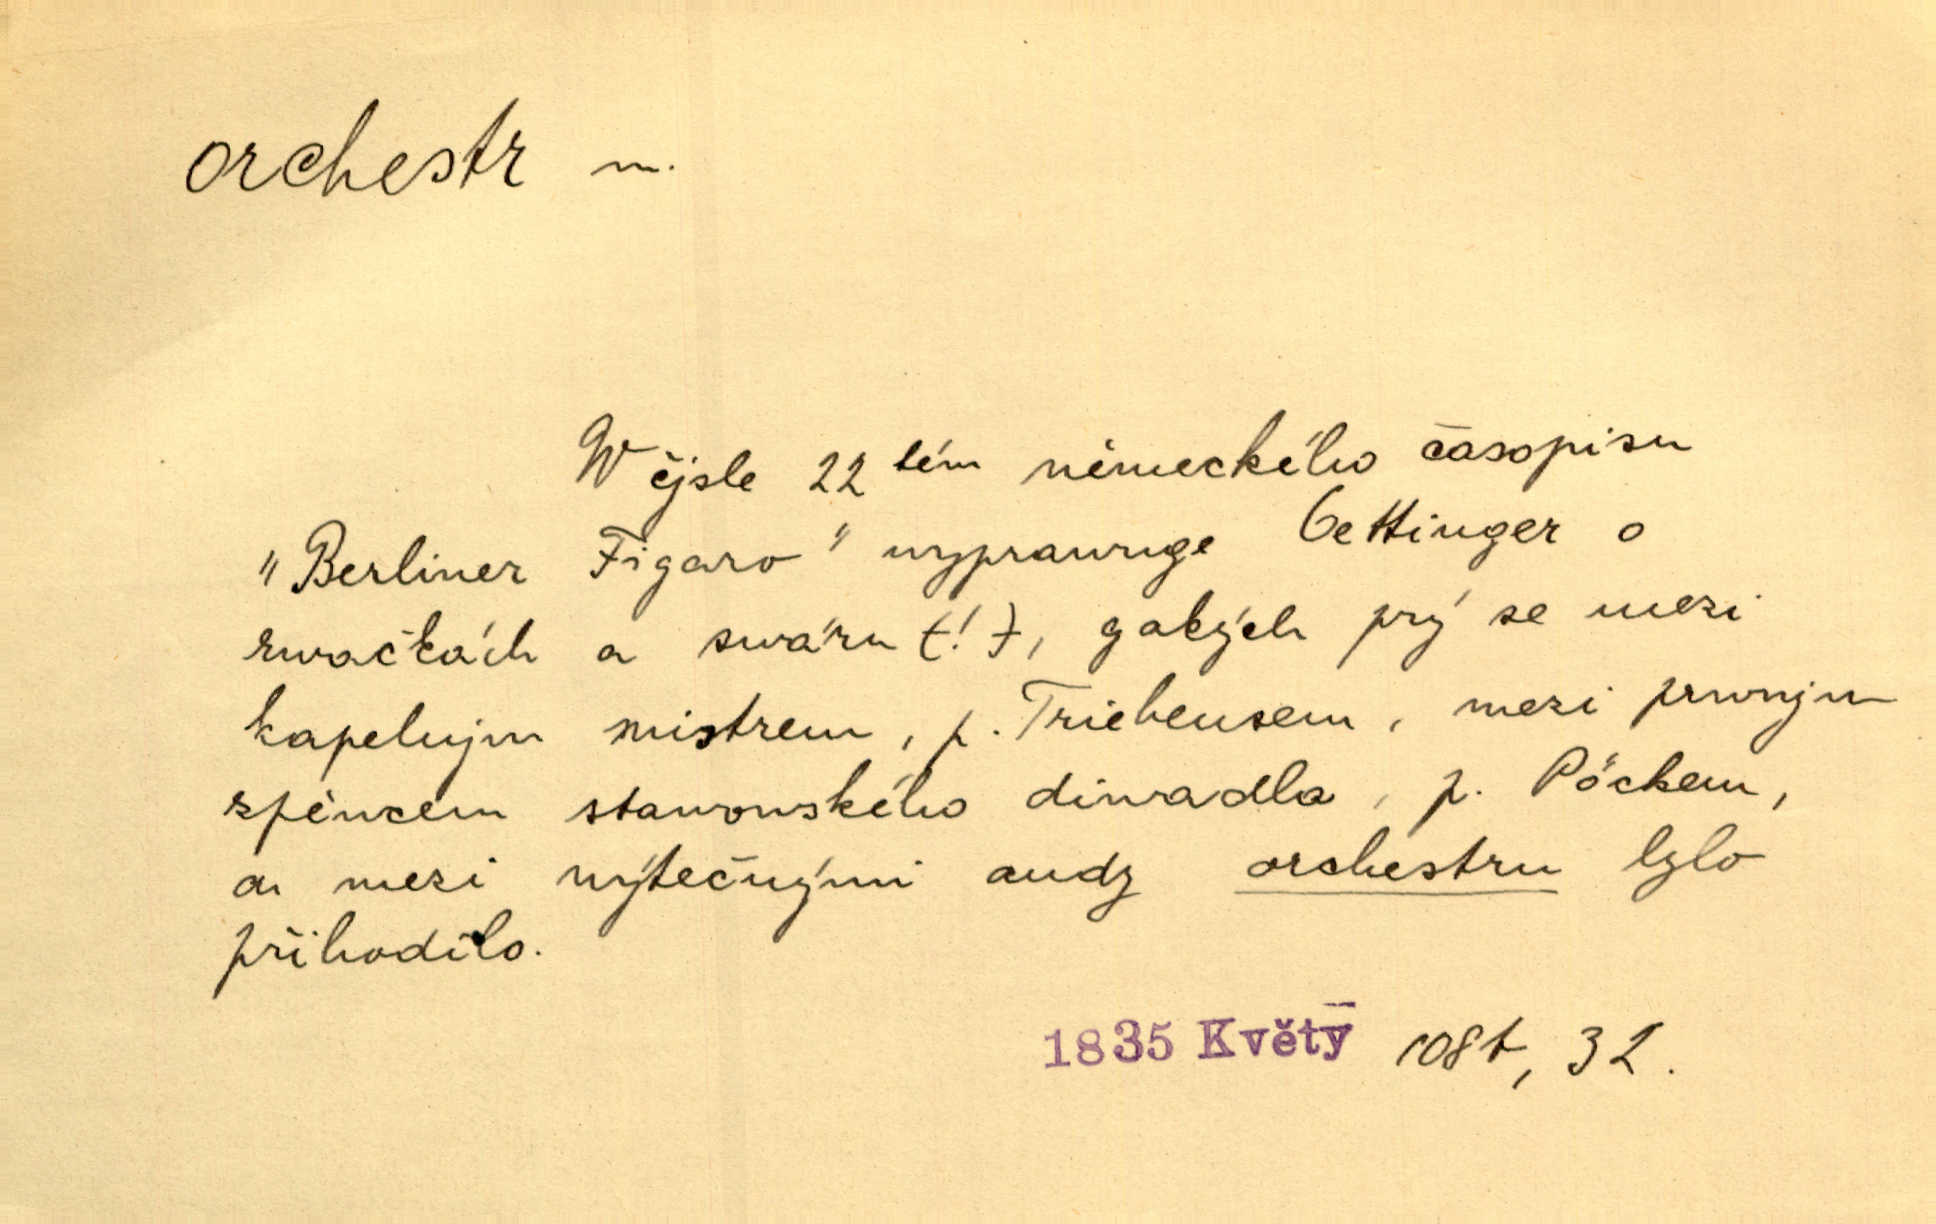 orchestr m.
W čjsle 22 tém německého časopisu
"Berliner Figaro" wyprawuge Oettinger o
rwačkách a swáru (!), gakých prý se mezi
kapelnjm mistrem, p. Triebensem, mezi prwnjm
zpěwcem stawowského diwadla, p. Pöckem,
a mezi wýtečnými audy orchestru bylo
přihodilo.
1835 Květy 108b, 32.